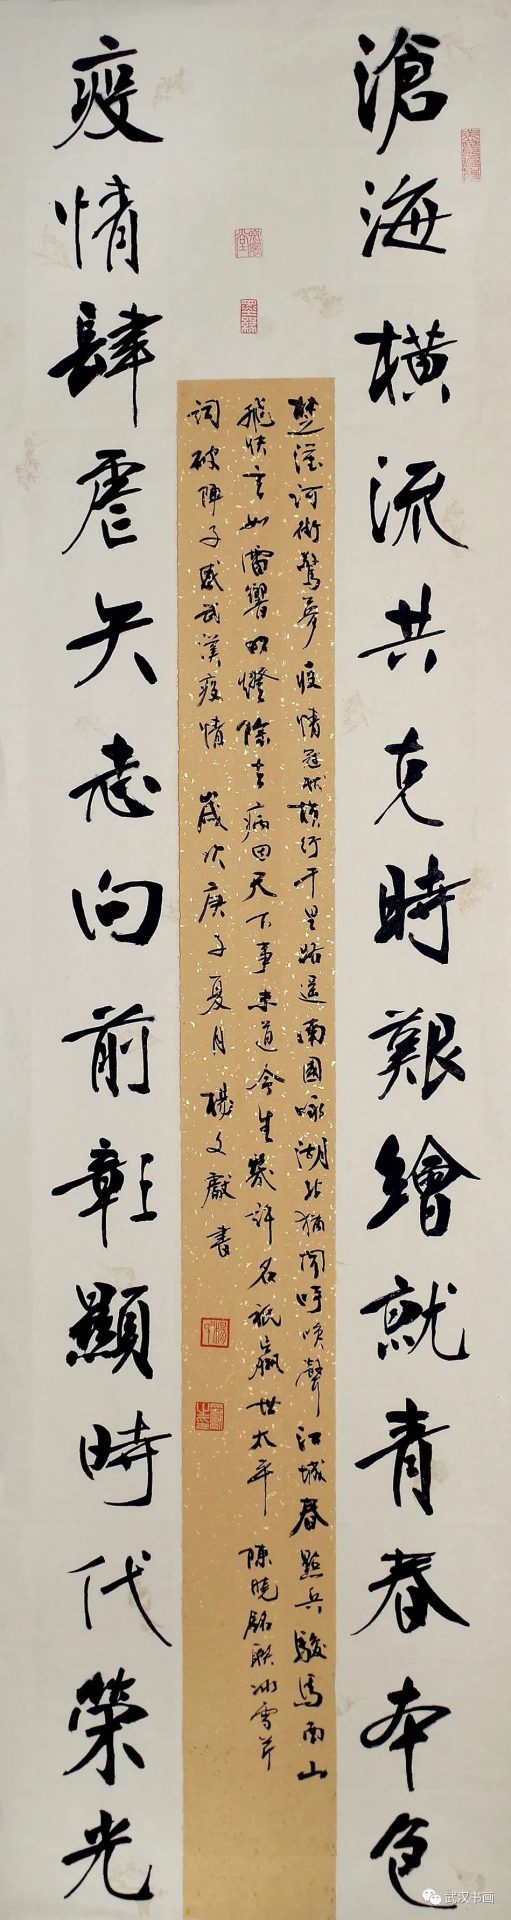 滄海橫流共克時艱繪就青春本色
疫情肆虐矢志向前彰顯時代榮光
楚漢河街驚夢疫情冠狀橫行千里路遥南國咏湖北猶聞呼喚聲江城春點兵駿馬南山
飛快言如雷響明燈除去病田天下事未道今生幾許名祇贏世太平 陳曉銘聯冰雪芹
詞破陣子感武漢疫情 歲次庚子夏月 楊文獻書
武汉书画